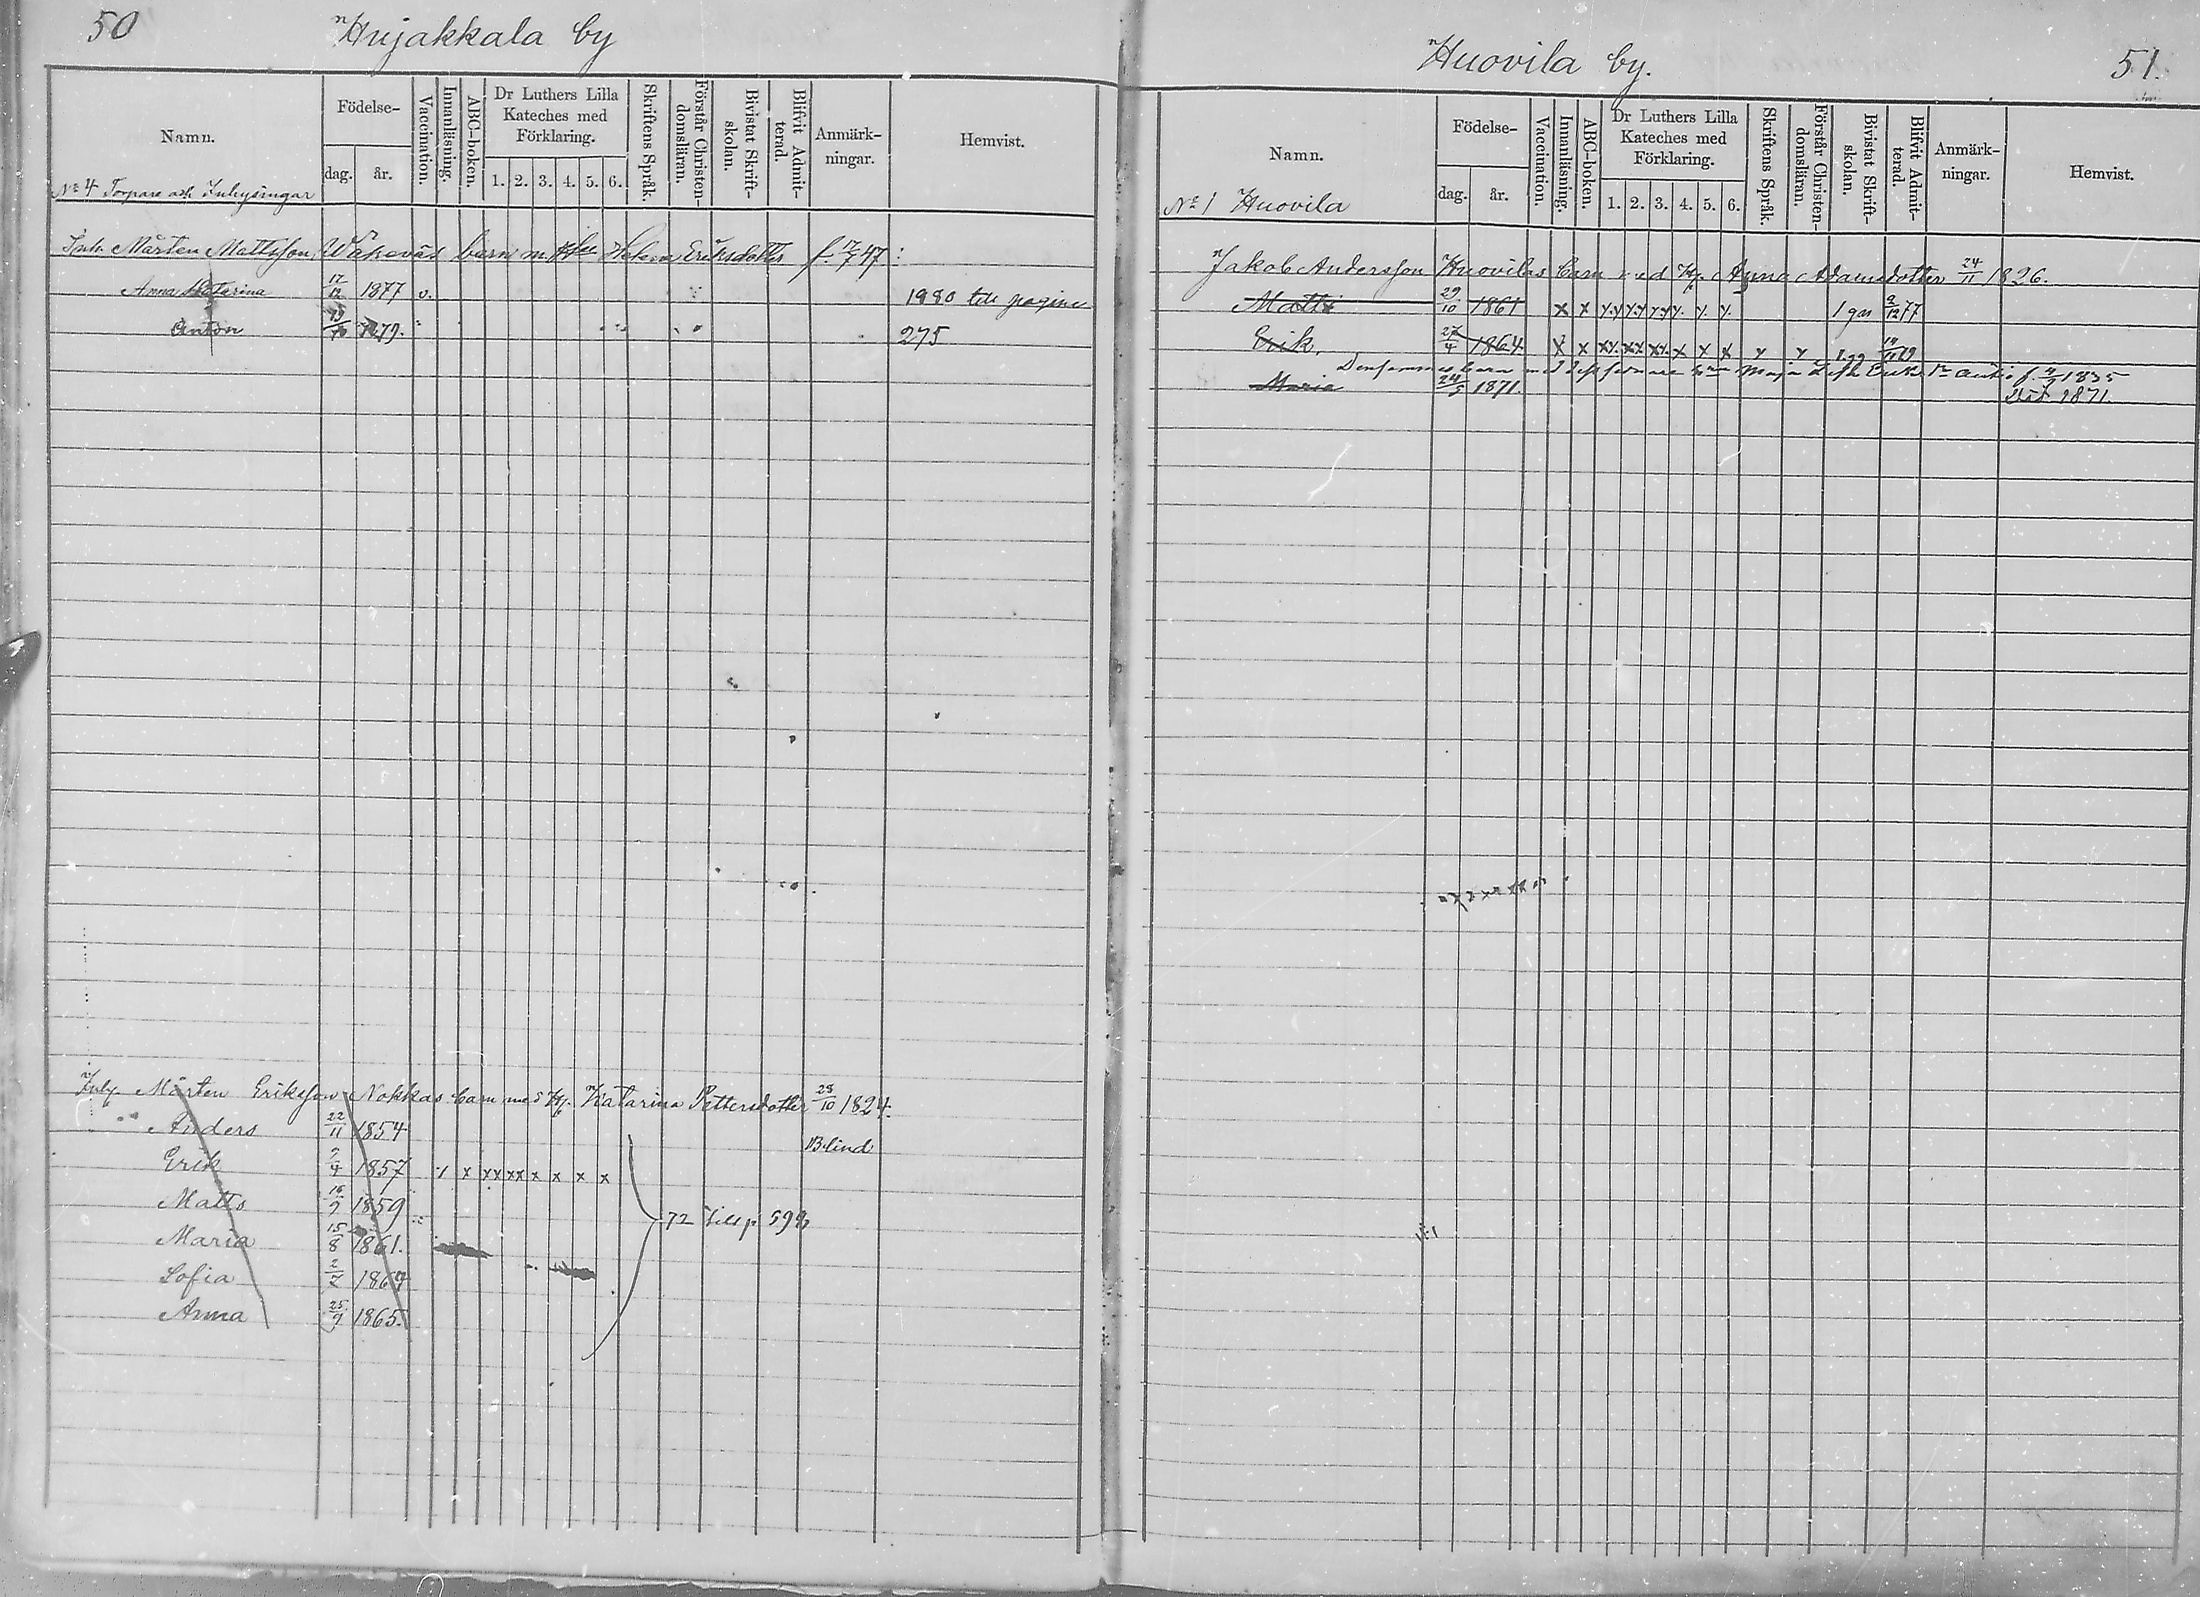 50 Hujakkala by
Namn. Födelse- dag. år. Vaccination. Innanläsning. ABC-boken. Dr Luthers Lilla Kateches med Förklaring. 1. 2. 3. 4. 5. 6. Skriftens Språk. Förstår Christen-domsläran. Bivistat Skrift-skolan. Blifvit Admit-terad. Anmärk-ningar. Hemvist.
No 4 Torpare och Inhysingar
Inh. Mårten Mattsson barn m. Helena Eriksdotter
Anna Katarina 17/12 1877 v. 1980 pagina
Anton 1879. 275
Inhy. Mårten Eriksson Nokkas barn med Hu. Katarina Pettersdotter 28/10 1824.
Anders 22/11 1854 Blind
Erik 1857 x x xx xx x x x x
Matts 1859
72 till p
Maria 15/8 1861.
Sofia 186
Anna 25/9 1865.
Huovila by. 51.
Namn. Födelse- dag. år. Vaccination. Innanläsning. ABC-boken. Dr Luthers Lilla Kateches med Förklaring. 1. 2. 3. 4. 5. 6. Skriftens Språk. Förstår Christen-domsläran. Bivistat Skrift-skolan. Blifvit Admit-terad. Anmärk-ningar. Hemvist.
No 1 Huovila
Jakob Andersson Huovilas barn med Hu. Anna Adamsdotter 24/11 1826.
Matts 29/10 1861 x x 1 gg 77
Erik. 27/4 1864. x x xx. xx. xx. x x x 1 gg
Densammes barn med Maja 1835
Maria 1871. 1871.